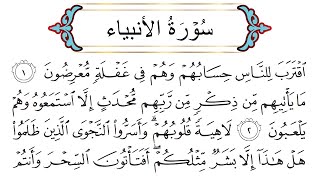 سُورَةُ الأنبياء
ٱقۡتَرَبَ لِلنَّاسِ حِسَابُهُمۡ وَهُمۡ فِي غَفۡلَةٖ مُّعۡرِضُونَ ١
مَا يَأۡتِيهِم مِّن ذِكۡرٖ مِّن رَّبِّهِم مُّحۡدَثٍ إِلَّا ٱسۡتَمَعُوهُ وَهُمۡ
يَلۡعَبُونَ ٢ لَاهِيَةٗ قُلُوبُهُمۡۗ وَأَسَرُّواْ ٱلنَّجۡوَى ٱلَّذِينَ ظَلَمُواْ
هَلۡ هَٰذَآ إِلَّا بَشَرٞ مِّثۡلُكُمۡۖ أَفَتَأۡتُونَ ٱلسِّحۡرَ وَأَنتُمۡ